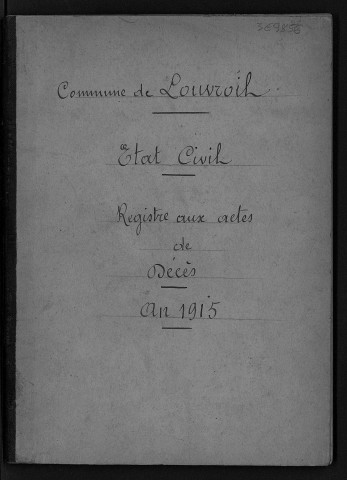 Commune de Louvroil
Etat Civil
Registre aux actes
de
Décès
An 1915